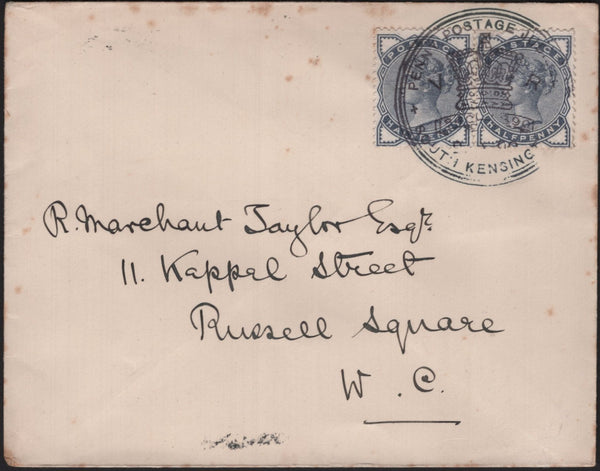 PENNY POSTAGE
POSTAGE
POSTAGE
HALFPENNY
HALFPENNY
SOUTH KENSING
R. Marchant Taylor Esqr.
11. Keppel Street
Russell Square
W. C.